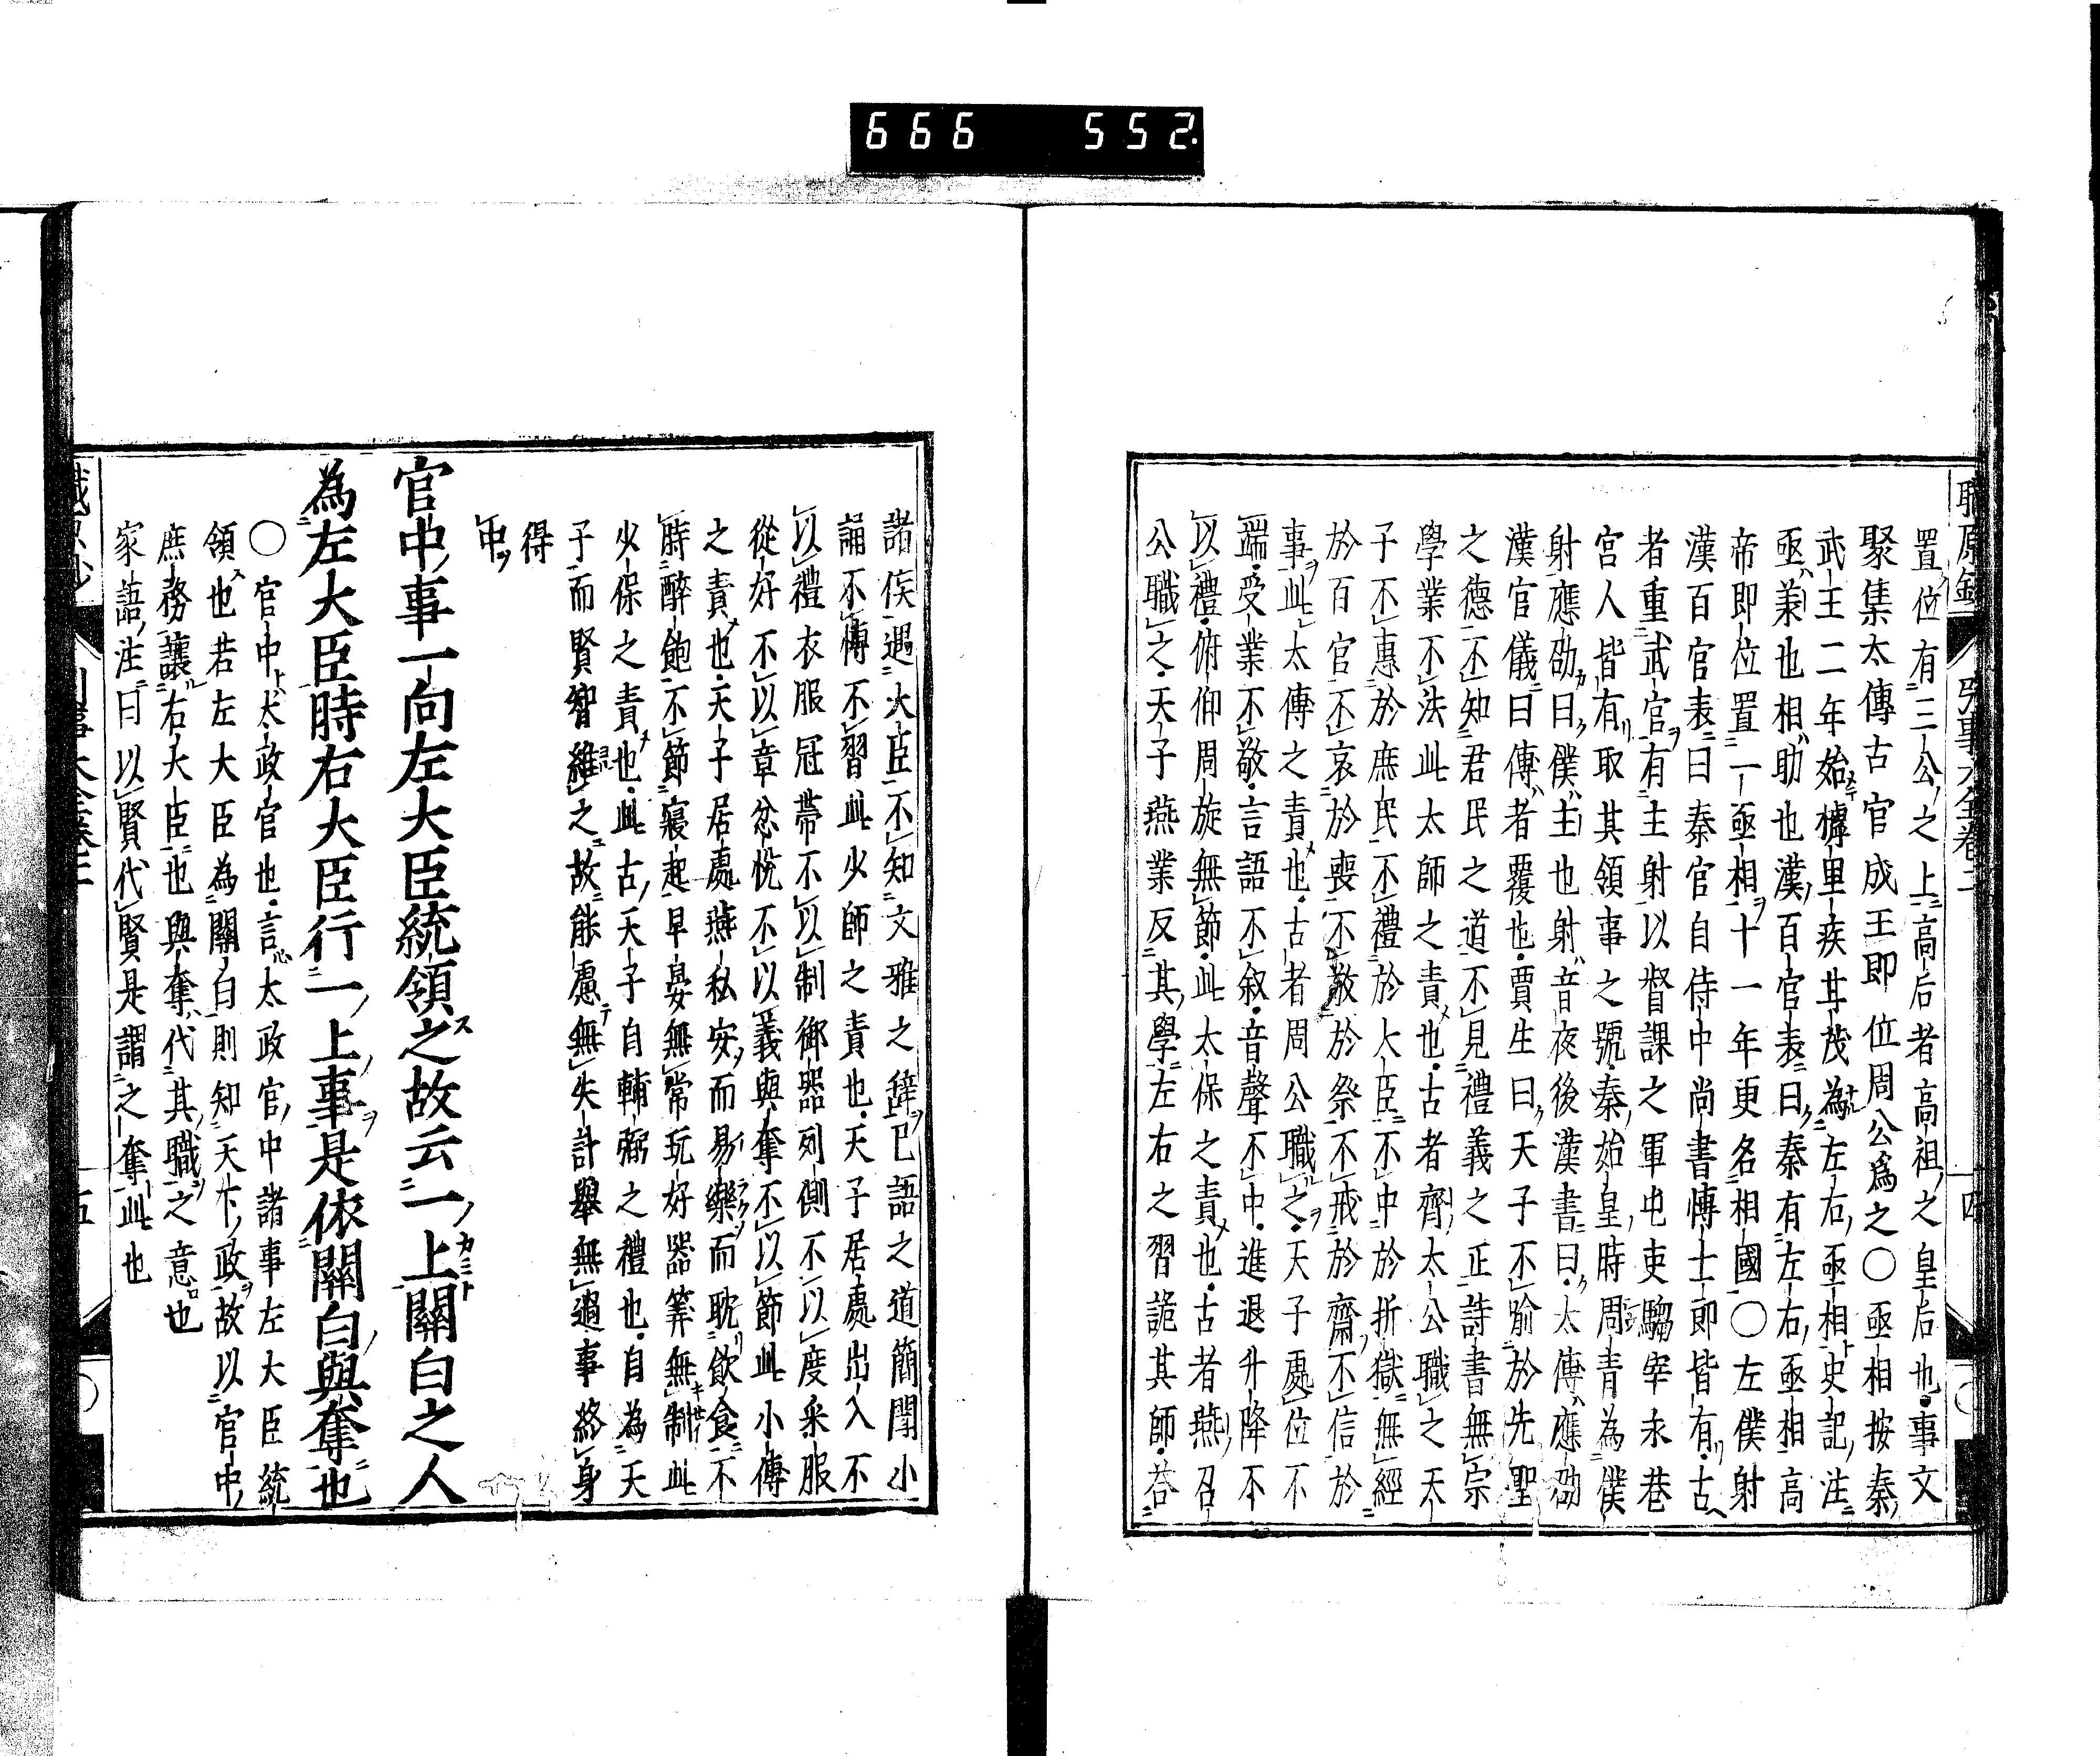 666 552
置位有三公之上高后者高祖之皇后也事文
聚集太傅古官成王即位周公爲之〇亟相按秦
武王二年始樗里疾甘茂為左右亟相史記注
亟兼也相助也漢百官表曰秦有左右亟相高
帝即位置一亟相十一年更名相國〇左僕射
漢百官表曰秦官自侍中尚書博士郎皆有古
者重武官有主射以督課之軍屯吏騶宰永巷
宮人皆有取其領事之號秦始皇時周青為僕
射應劭曰僕主也射音夜後漢書曰太傅應劭
漢官儀曰傅者覆也賈生曰天子不喻於先聖
之德不知君民之道不見禮義之正詩書無宗
學業不法此太師之責也古者齊太公職之天
子不惠於庶民不禮於大臣不中於折獄無經
於百官不哀於喪不敬於祭不戒於齋不信於
事此太傅之責也古者周公職之天子處位不
端受業不敬言語不叙音聲不中進退升降不
以禮俯仰周旋無節此太保之責也古者燕召
公職之天子燕業反其學左右之習詭其師荅
諸侯遇大臣不知文雅之辞已語之道簡聞小
誦不博不習此少師之責也天子居處出入不
以禮衣服冠帶不以制御器列側不以度采服
從好不以章忿悦不以義與奪不以節此小傅
之責也天子居處燕私安而易樂而耽飲食不
時醉飽不節寢起早晏無常玩好器筭無制此
少保之責也此古天子自輔弼之禮也自為天
子而賢智維之故能慮無失計舉無過事終身
得
中
官中事一向左大臣統領之故云一上關白之人
為左大臣時右大臣行一上事是依關白與奪也
〇官中太政官也言太政官中諸事左大臣統
領也若左大臣為關白則知天下政故以官中
庶務讓右大臣也與奪代其職之意也
家語注曰以賢代賢是謂之奪此也